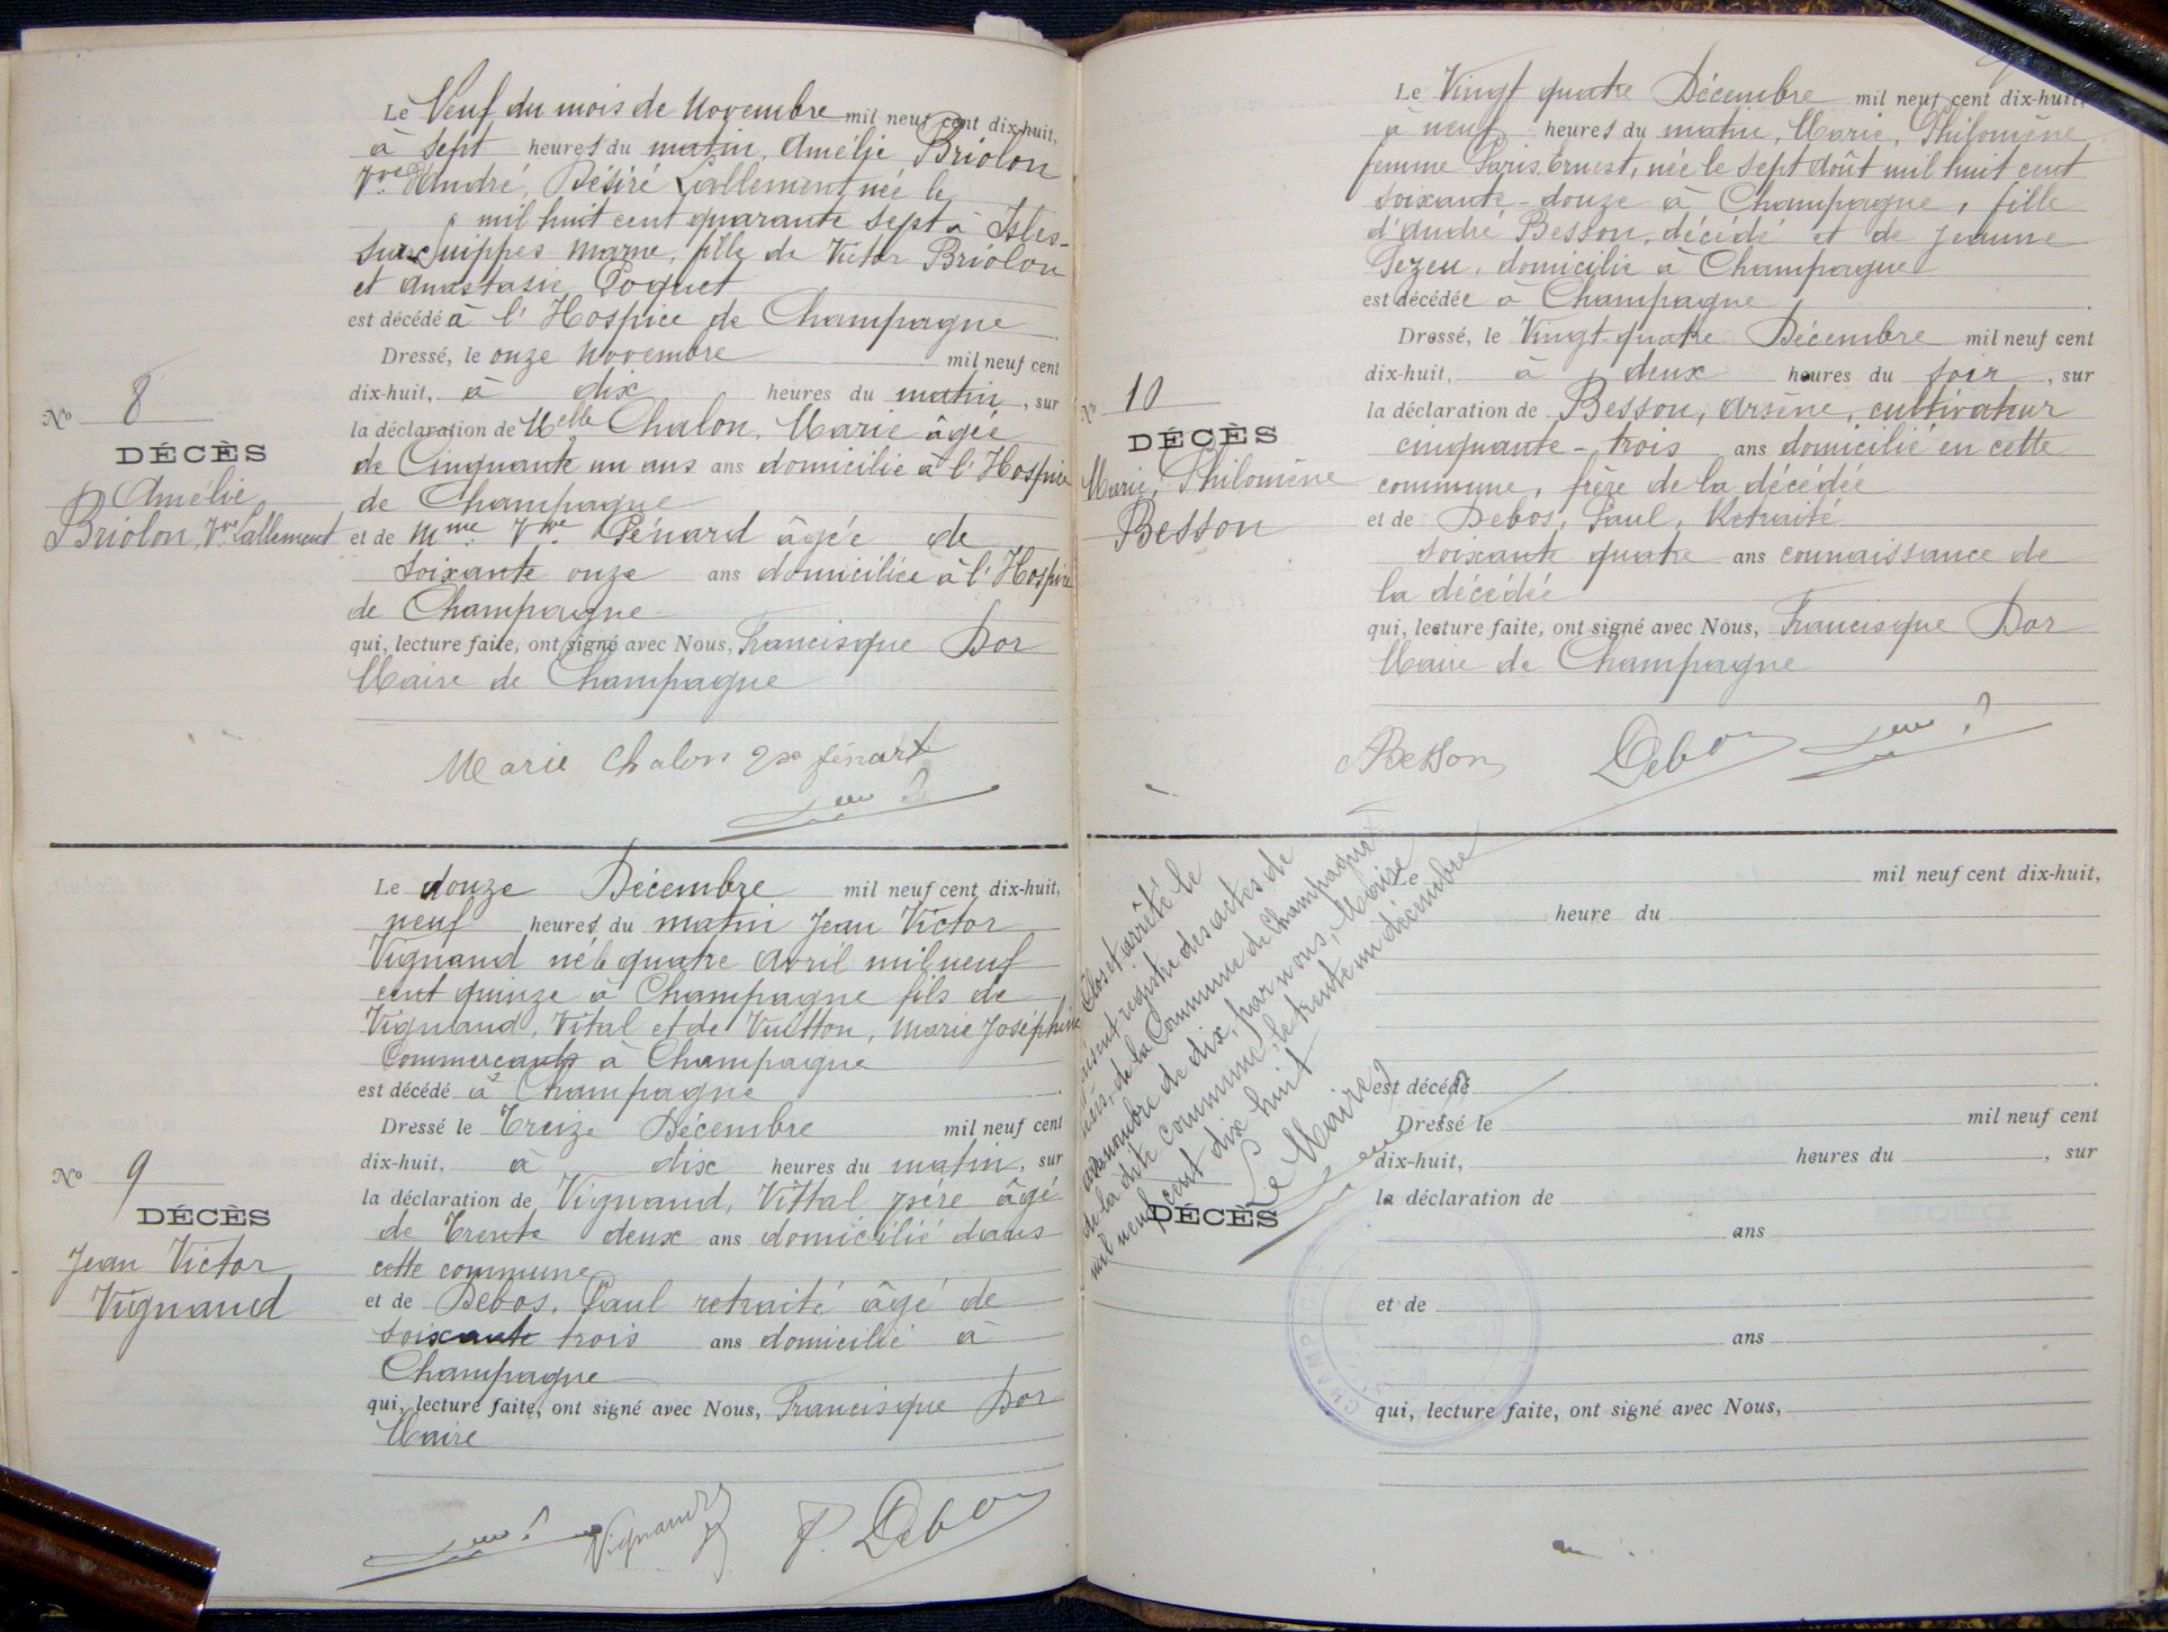 Le Neuf du mois de Novembre mil neuf cent dix-huit,
à sept heures du matin, Amélie Briolon
Vve d'André, Désiré Lallement, née le
mil huit cent quarante sept à Isles-
sur-Suippes Marne, fille de Victor Briolon
et Anastasie Poquet
est décédé à l'Hospice de Champagne
Dressé, le onze Novembre mil neuf cent
dix-huit, à dix heures du matin, sur
la déclaration de Melle Chalon, Marie âgée
de Cinquante un ans ans domicilie à l'Hospice
de Champagne
et de Mme Vve Pénard âgée de
soixante onze ans domiciliée à l'Hospice
de Champagne
qui, lecture faite, ont signé avec Nous, Francisque Dor
Maire de Champagne
Marie Chalon Vve Pénart
No 8
DÉCÈS
Amélie
Briolon, Vve Lallement
Le douze Décembre mil neuf cent dix-huit,
neuf heures du matin Jean Victor
Vignaud né le quatre Avril mil neuf
cent quinze à Champagne fils de
Vignaud, Vital et de Vuitton, Marie Joséphine
Commerçants à Champagne
est décédé à Champagne
Dressé le Treize Décembre mil neuf cent
dix-huit, à dix heures du matin, sur
la déclaration de Vignaud, Vittal père âgé
de Trente deux ans domicilié dans
cette commune
et de Debos, Paul retraité âgé de
soixante trois ans domicilié à
Champagne
qui, lecture faite, ont signé avec Nous, Francisque Dor
Maire
Vignaud P. Debos
No 9
DÉCÈS
Jean Victor
Vignaud
Le Vingt quatre Décembre mil neuf cent dix-huit,
à neuf heures du matin, Marie, Philomène
femme Paris Ernest, née le sept Août mil huit cent
soixante-douze à Champagne, fille
d'André Besson, décédé et de Jeanne
Pezeu, domicilie à Champagne
est décédée à Champagne
Dressé, le Vingt-quatre Décembre mil neuf cent
dix-huit, à deux heures du soir, sur
la déclaration de Besson, Arsène, cultivateur
cinquante-trois ans domicilié en cette
commune, frère de la décédée
et de Debos, Paul, Retraité
soixante quatre ans connaissance de
la décédée
qui, lecture faite, ont signé avec Nous, Francisque Dor
Maire de Champagne
ABesson Debos
No 10
DÉCÈS
Marie, Philomène
Besson
Clos et arrêté le
présent registre des actes de
décès, de la Commune de Champagne
au nombre de dix, par nous, Maire
de la dite commune, le trente un décembre
mil neuf cent dix huit
Le Maire,
DÉCÈS
Le mil neuf cent dix-huit,
heure du
est décédé
Dressé le mil neuf cent
dix-huit, heures du , sur
la déclaration de
ans
et de
ans
qui, lecture faite, ont signé avec Nous,